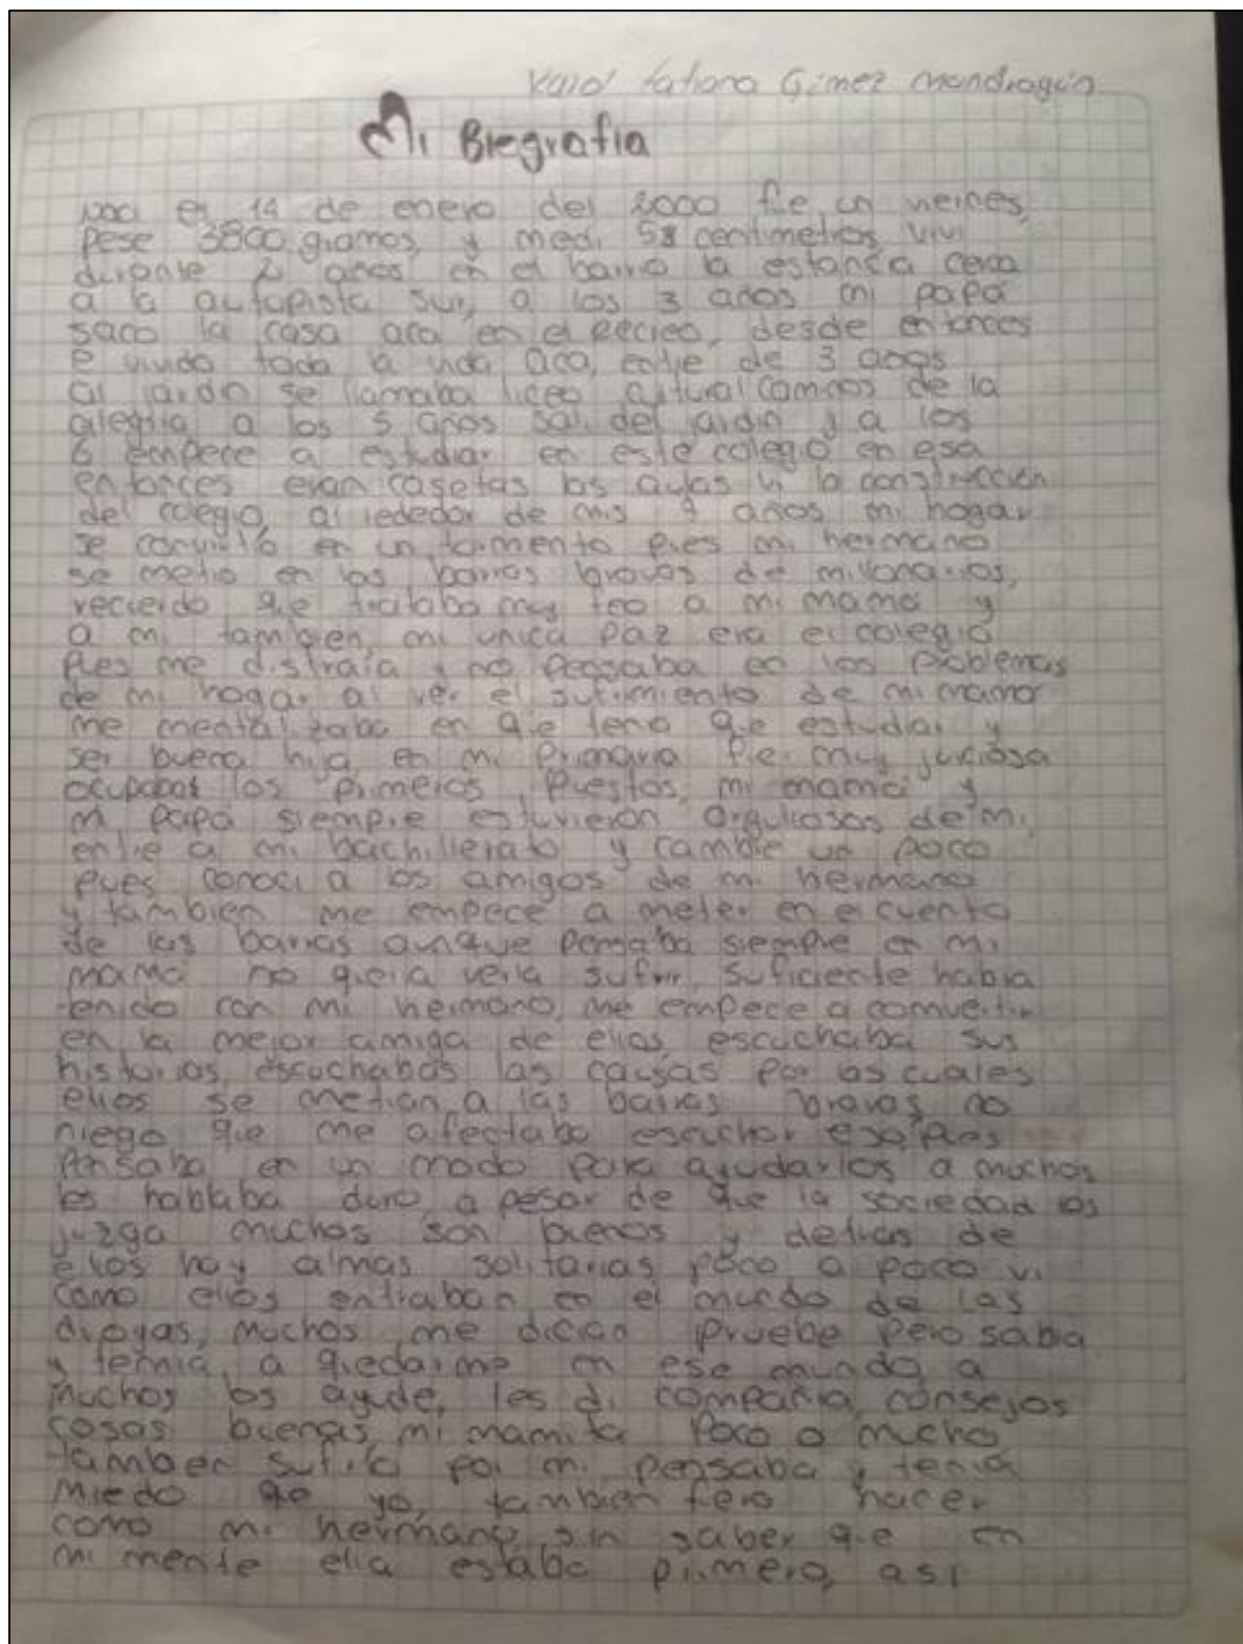 Karol tatiana Gómez mondragón
Mi Biografia
naci el 14 de enero del 2000 fue un viernes,
pese 3800 gramos, y medi 58 centimetros, vivi
durante 2 años en el barrio la estancia cerca
a la autopista sur, a los 3 años mi papá
saco la casa aca en el Recreo, desde entonces
e vivido toda la vida aca, entre de 3 años
al jardin se llamaba liceo cultural caminos de la
alegria a los 5 años sali del jardin y a los
6 empece a estudiar en este colegio en esa
entonces eran casetas las aulas vi la construcción
del colegio, al rededor de mis 9 años mi hogar
se convirtio en un tormento pues mi hermano
se metio en las barras bravas de millonarios,
recuerdo que trataba muy feo a mi mamá y
a mi también, mi unica paz era el colegio
pues me distraía y no pensaba en los problemas
de mi hogar al ver el sufrimiento de mi mamá
me mentalizaba en que tenia que estudiar y
ser buena hija en mi primaria fui muy juiciosa
ocupaba los primeros puestos, mi mamá y
mi papá siempre estuvieron orgullosos de mi,
entre a mi bachillerato y cambie un poco
pues conoci a los amigos de mi hermano
y tambien me empece a meter en el cuento
de las barras aunque pensaba siempre en mi
mamá no queria verla sufrir, suficiente habia
tenido con mi hermano, me empece a convertir
en la mejor amiga de ellos, escuchaba sus
historias, escuchabas las causas por las cuales
ellos se metian a las barras bravas no
niego que me afectaba escuchar eso, pues
pensaba en un modo para ayudarlos a muchos
les hablaba duro, a pesar de que la sociedad los
juzga muchos son buenos y detras de
ellos hay almas solitarias poco a poco vi
como ellos entraban en el mundo de las
drogas, muchos me dician pruebe pero sabia
y temia a quedarme en ese mundo a
muchos los ayude, les di compañia, consejos
cosas buenas, mi mamita poco o mucho
tambien sufrio por mi pensaba y tenia
miedo que yo, tambien hacer
como mi hermano, sin saber que en
mi mente ella estaba primero, asi